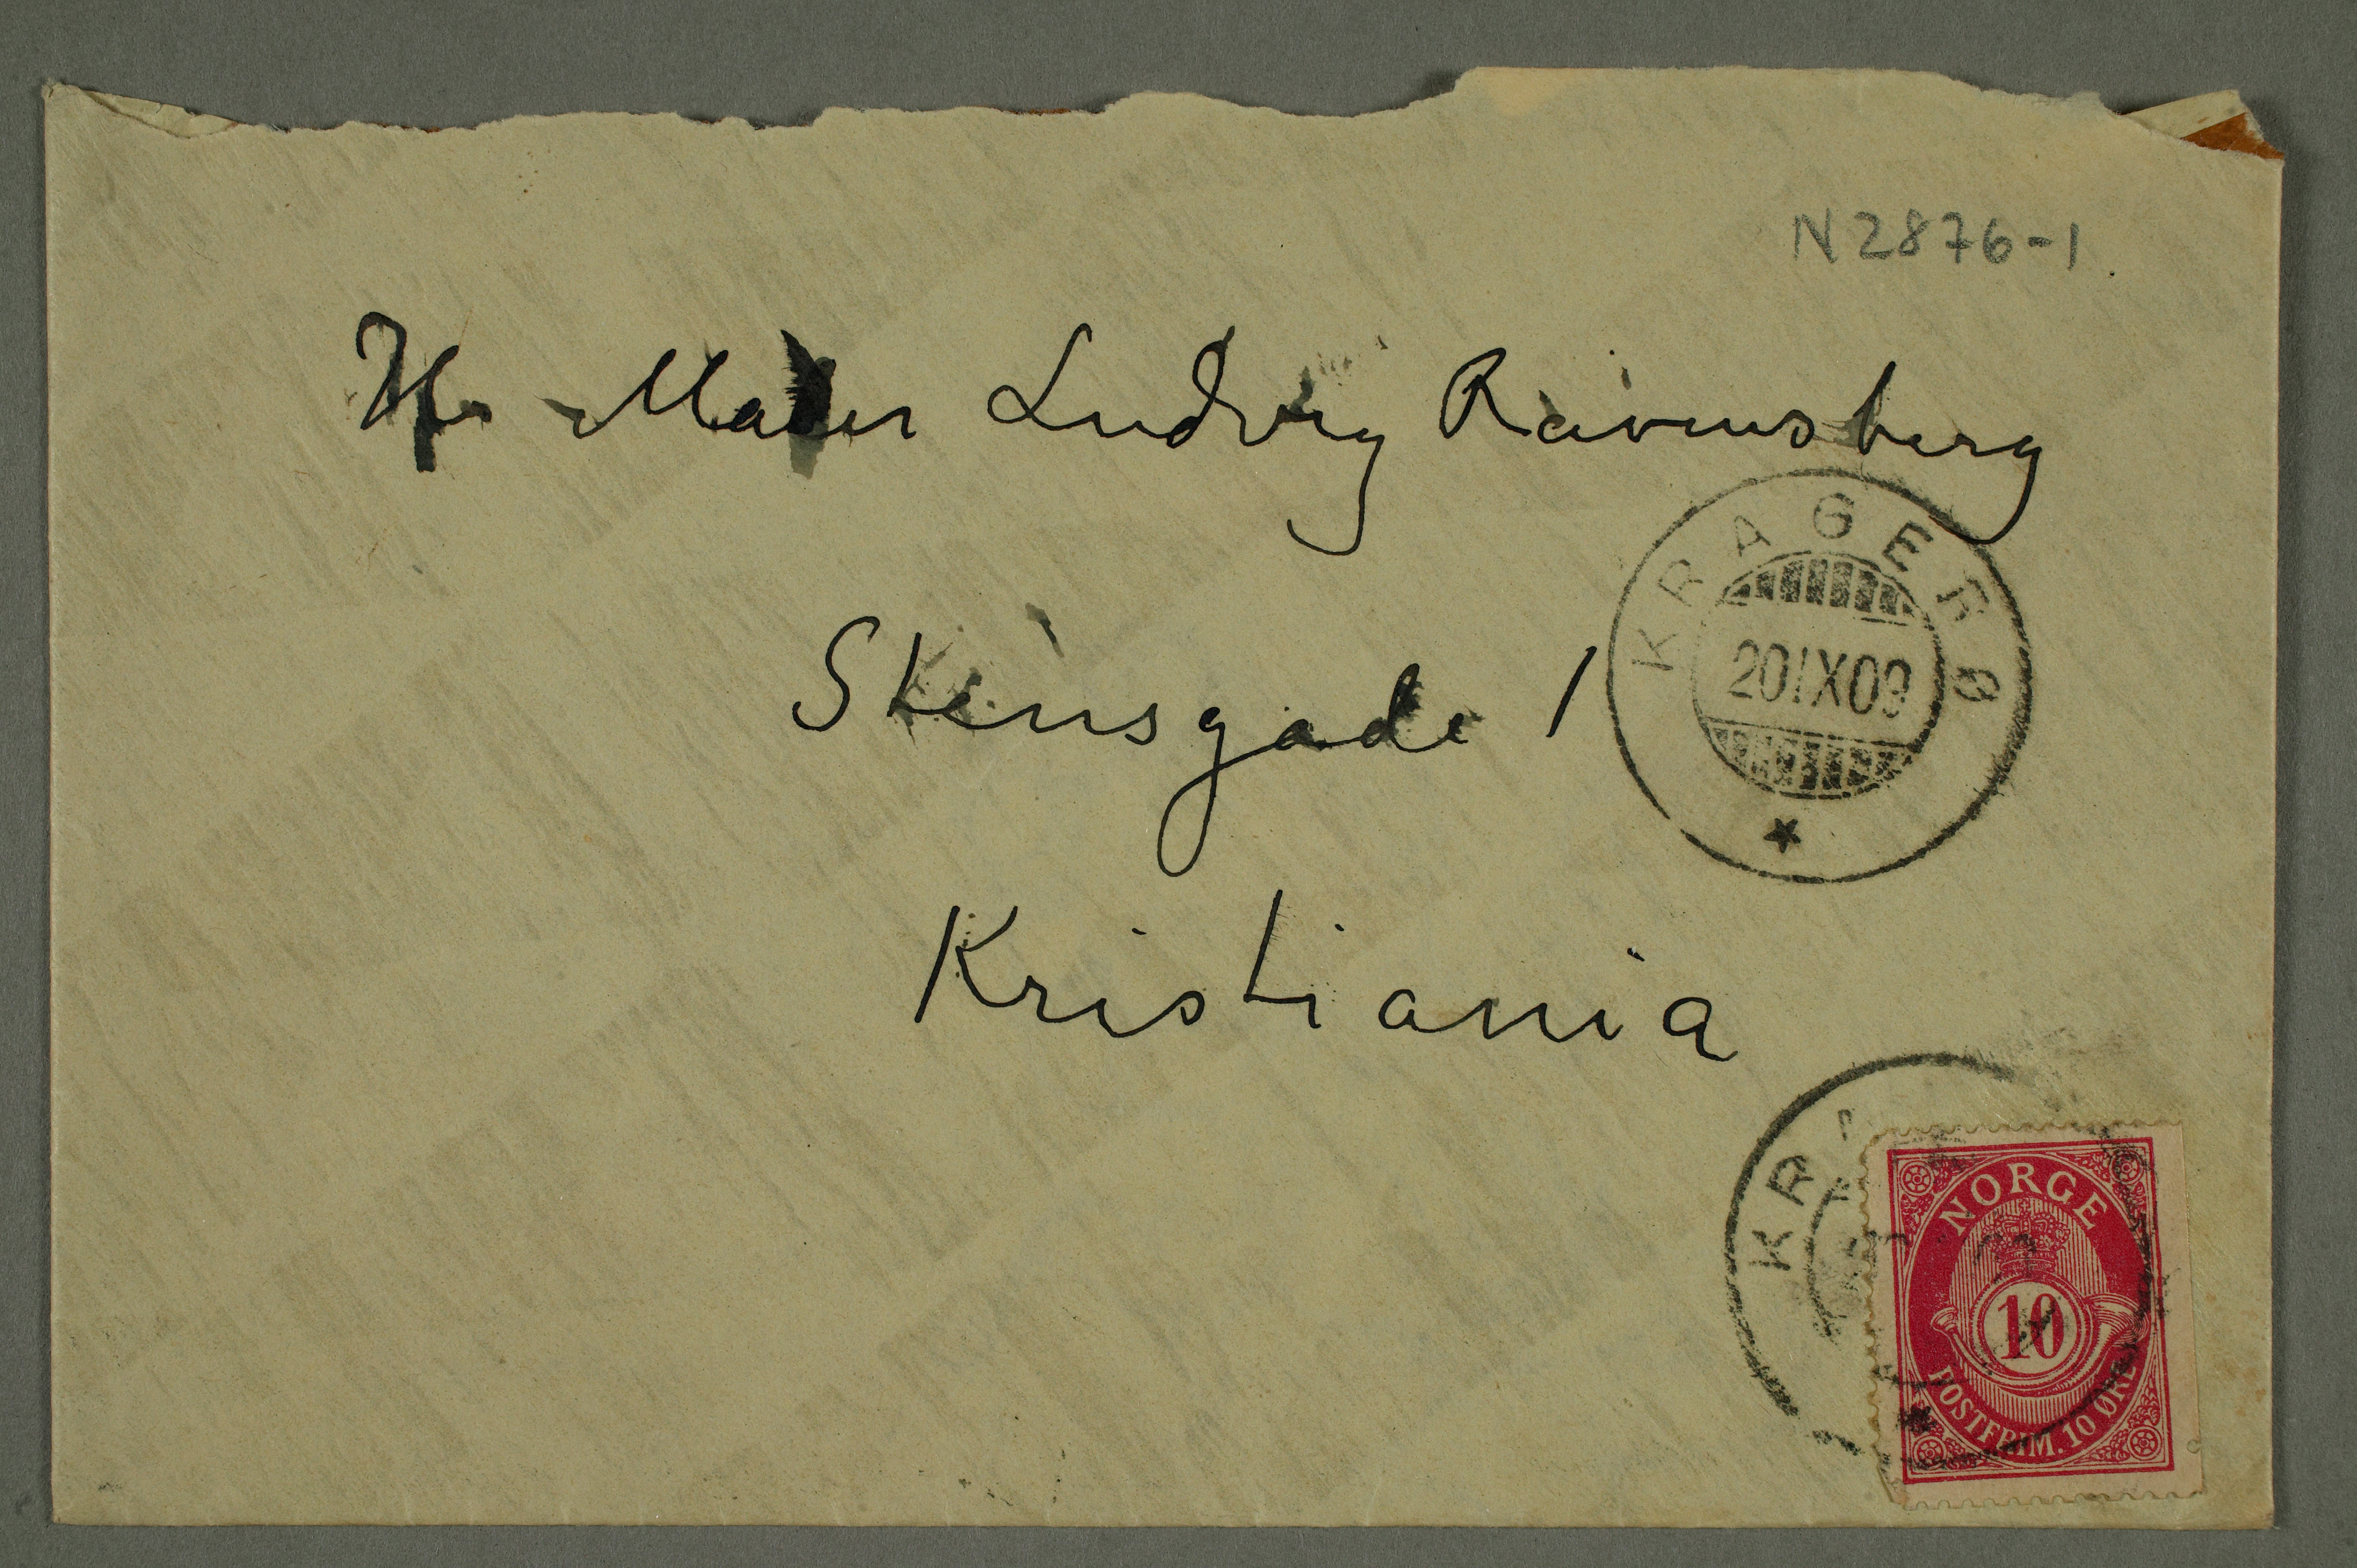 N 2876-1
Hr Maler Ludvig Ravensberg
Stensgade 1
Kristiania
KRAGERØ
20 IX 09
KRA
NORGE
10
POSTFRIM. 10 ØRE